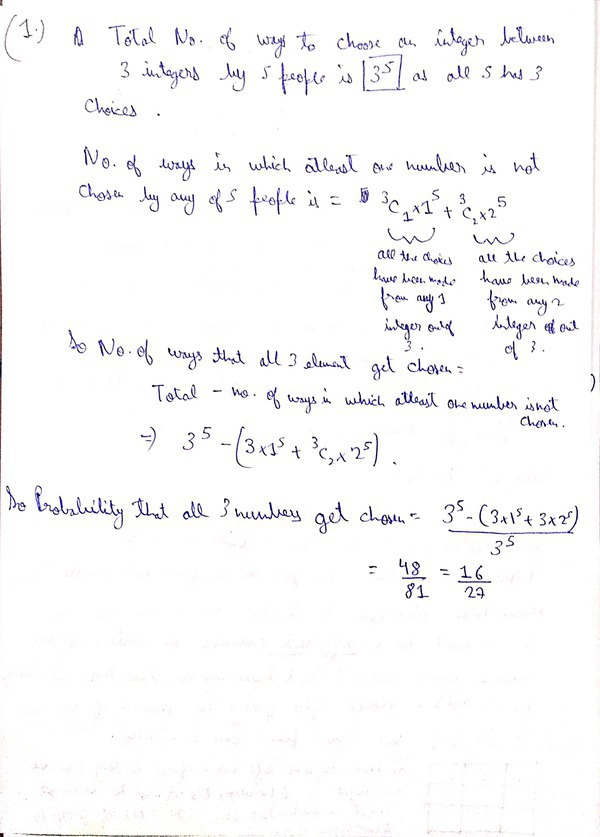 (1.) Total No. of ways to choose an integer between
3 integers by 5 people is 3⁵ as all 5 has 3
Choices.
No. of ways in which atleast one number is not
chosen by any of 5 people is = ³C₁×1⁵ + ³C₂×2⁵
all the choices have been made from any 1 integer out of 3.
all the choices have been made from any 2 integer out of 3.
So No. of ways that all 3 element get chosen =
Total - no. of ways in which atleast one number is not
chosen.
⇒ 3⁵ - (3×1⁵ + ³C₂×2⁵).
So Probability that all 3 numbers get chosen = 3⁵-(3×1⁵+3×2⁵) / 3⁵
= 48/81 = 16/27